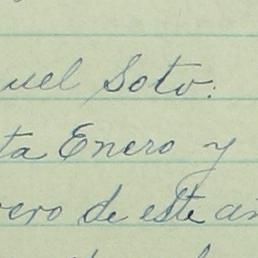 uel Soto:
ta Enero y
ero de este añ